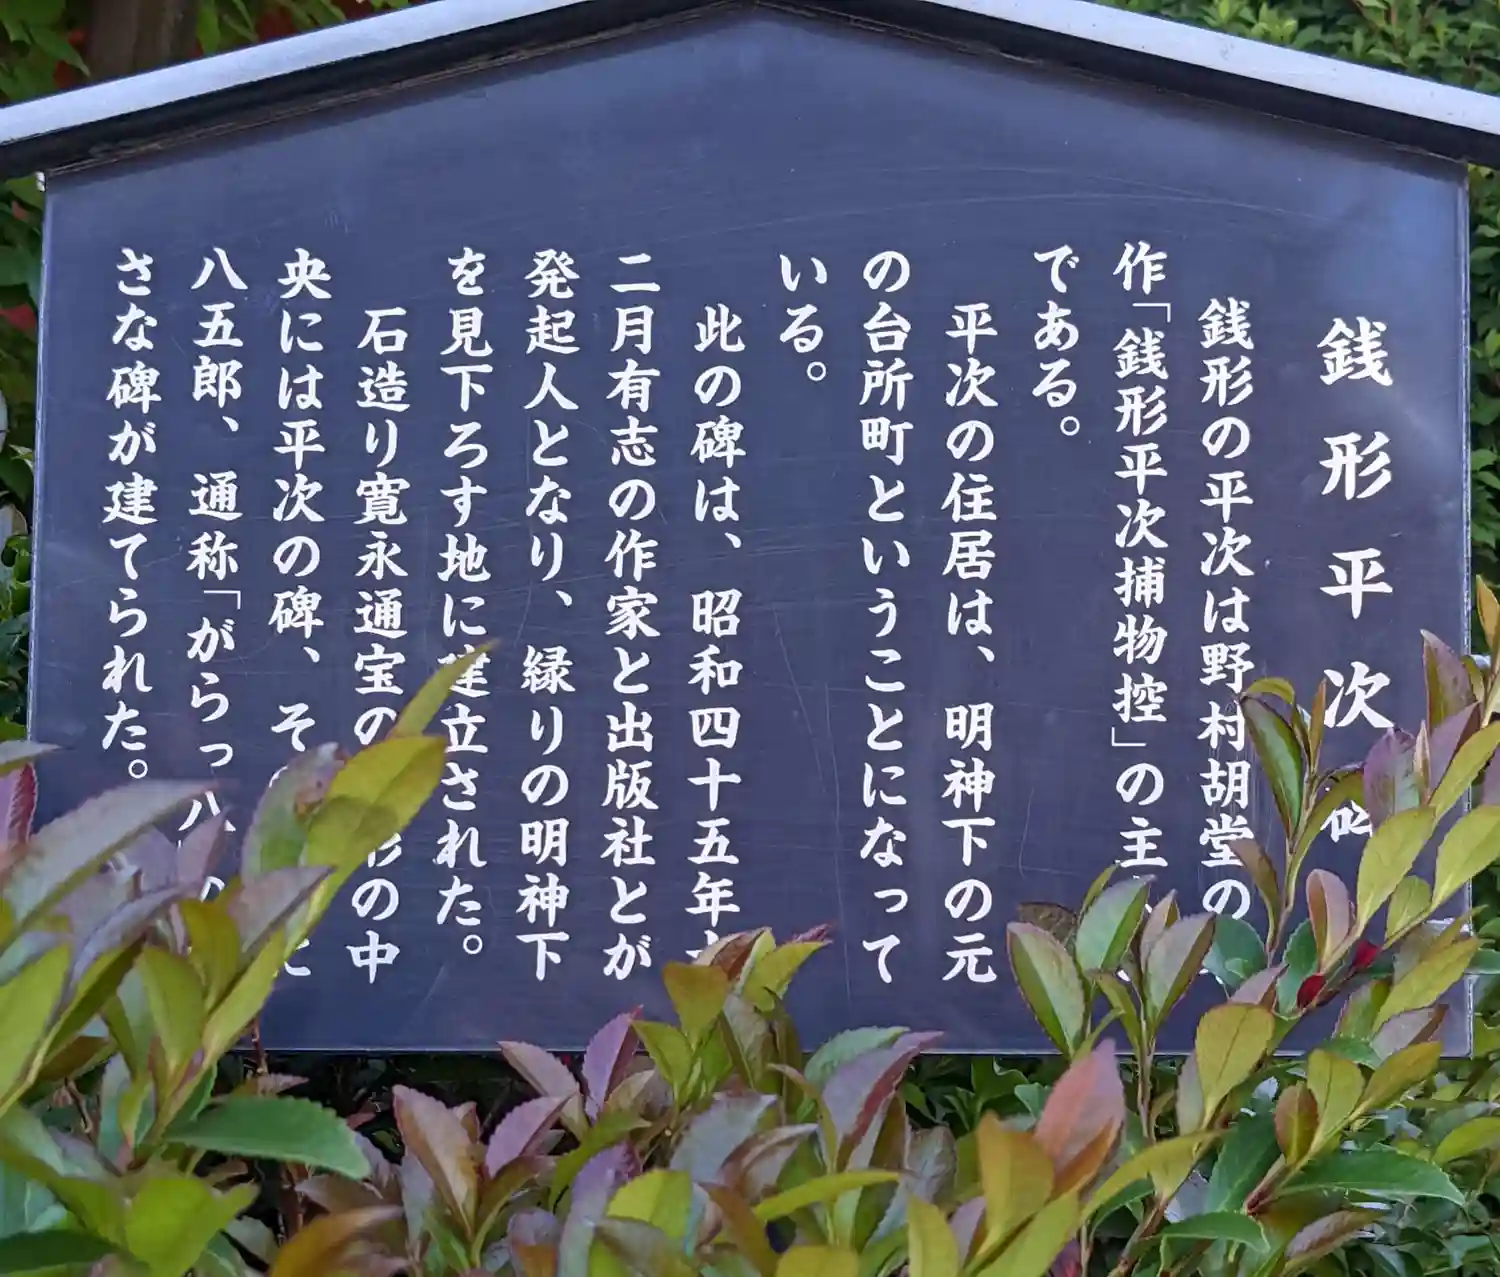 銭形平次碑
銭形の平次は野村胡堂の
作「銭形平次捕物控」の主
である。
平次の住居は、明神下の元
の台所町ということになって
いる。
此の碑は、昭和四十五年十
二月有志の作家と出版社とが
発起人となり、縁りの明神下
を見下ろす地に建立された。
石造り寛永通宝の形の中
央には平次の碑、そ
八五郎、通称「がらっ八」の
さな碑が建てられた。